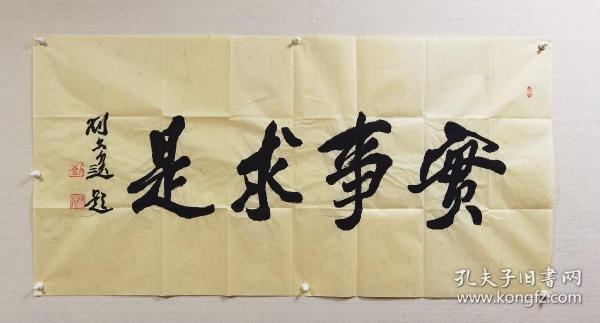 實事求是
題
孔夫子旧書网
www.kongfz.com